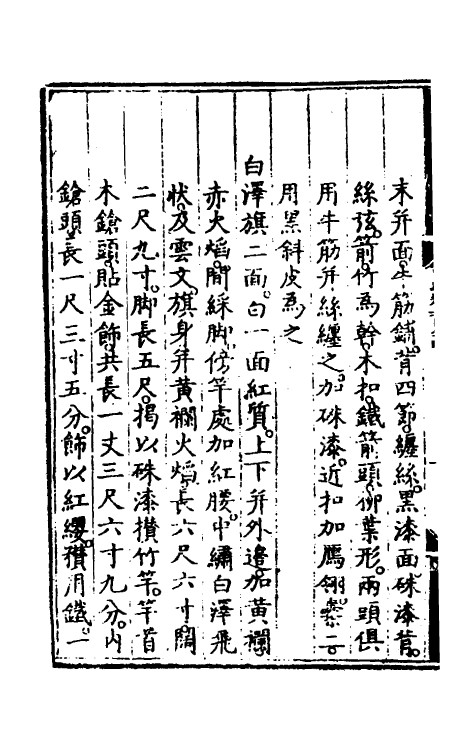 末并面牛筋鋪背四節纏絲黑漆面硃漆背
絲弦箭竹為幹木扣鐵箭頭柳葉形兩頭俱
用牛筋并絲纏之加硃漆近扣加鷹翎槖二
用黑斜皮為之
白澤旗二面白一面紅質上下并外邊加黃襴
赤火焰間綵脚傍竿處加紅腰中繡白澤飛
狀及雲文旗身并黃襴火焰長六尺六寸闊
二尺九寸脚長五尺掲以硃漆攢竹竿竿首
木鎗頭貼金飾共長一丈三尺六寸九分內
鎗頭長一尺三寸五分飾以紅纓穳用鐵一